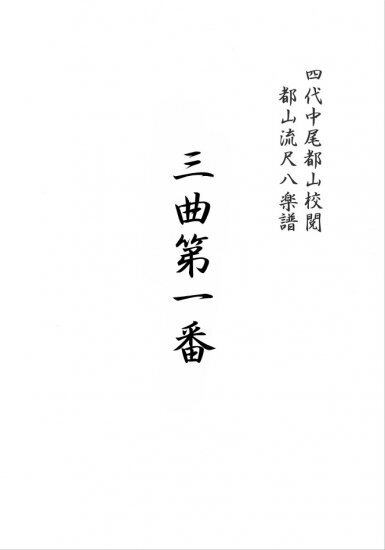 四代中尾都山校閲
都山流尺八楽譜
三曲第一番